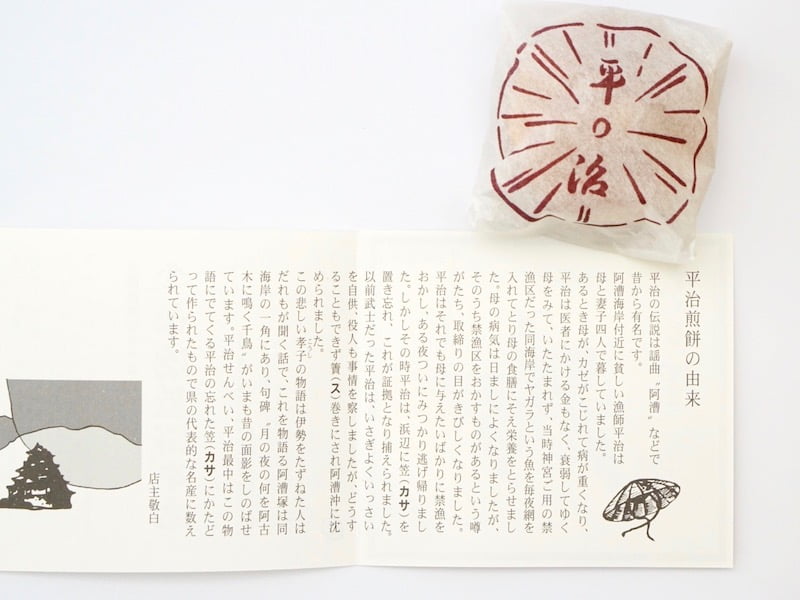 平治
平治煎餅の由来
平治の伝説は謡曲〝阿漕〟などで
昔から有名です。
阿漕海岸付近に貧しい漁師平治は
母と妻子四人で暮していました。
あるとき母が、カゼがこじれて病が重くなり、
平治は医者にかける金もなく、衰弱してゆく
母をみて、いたたまれず、当時神宮ご用の禁
漁区だった同海岸でヤガラという魚を毎夜網を
入れてとり母の食膳にそえ栄養をとらせまし
た。母の病気は日ましによくなりましたが、
そのうち禁漁区をおかすものがあるという噂
がたち、取締りの目がきびしくなりました。
平治はそれでも母に与えたいばかりに禁漁を
おかし、ある夜ついにみつかり逃げ帰りまし
た。しかしその時平治は、浜辺に笠(カサ)を
置き忘れ、これが証拠となり捕えられました。
以前武士だった平治は、いさぎよくいっさい
を自供、役人も事情を察しましたが、どうす
ることもできず簀(ス)巻きにされ阿漕沖に沈
められました。
この悲しい孝子(こうし)の物語は伊勢をたずねた人は
だれもが聞く話で、これを物語る阿漕塚は同
海岸の一角にあり、句碑〝月の夜の何を阿古
木に鳴く千鳥〟がいまも昔の面影をしのばせ
ています。平治せんべい、平治最中はこの物
語にでてくる平治の忘れた笠(カサ)にかたど
って作られたもので県の代表的な名産に数え
られています。
店主敬白